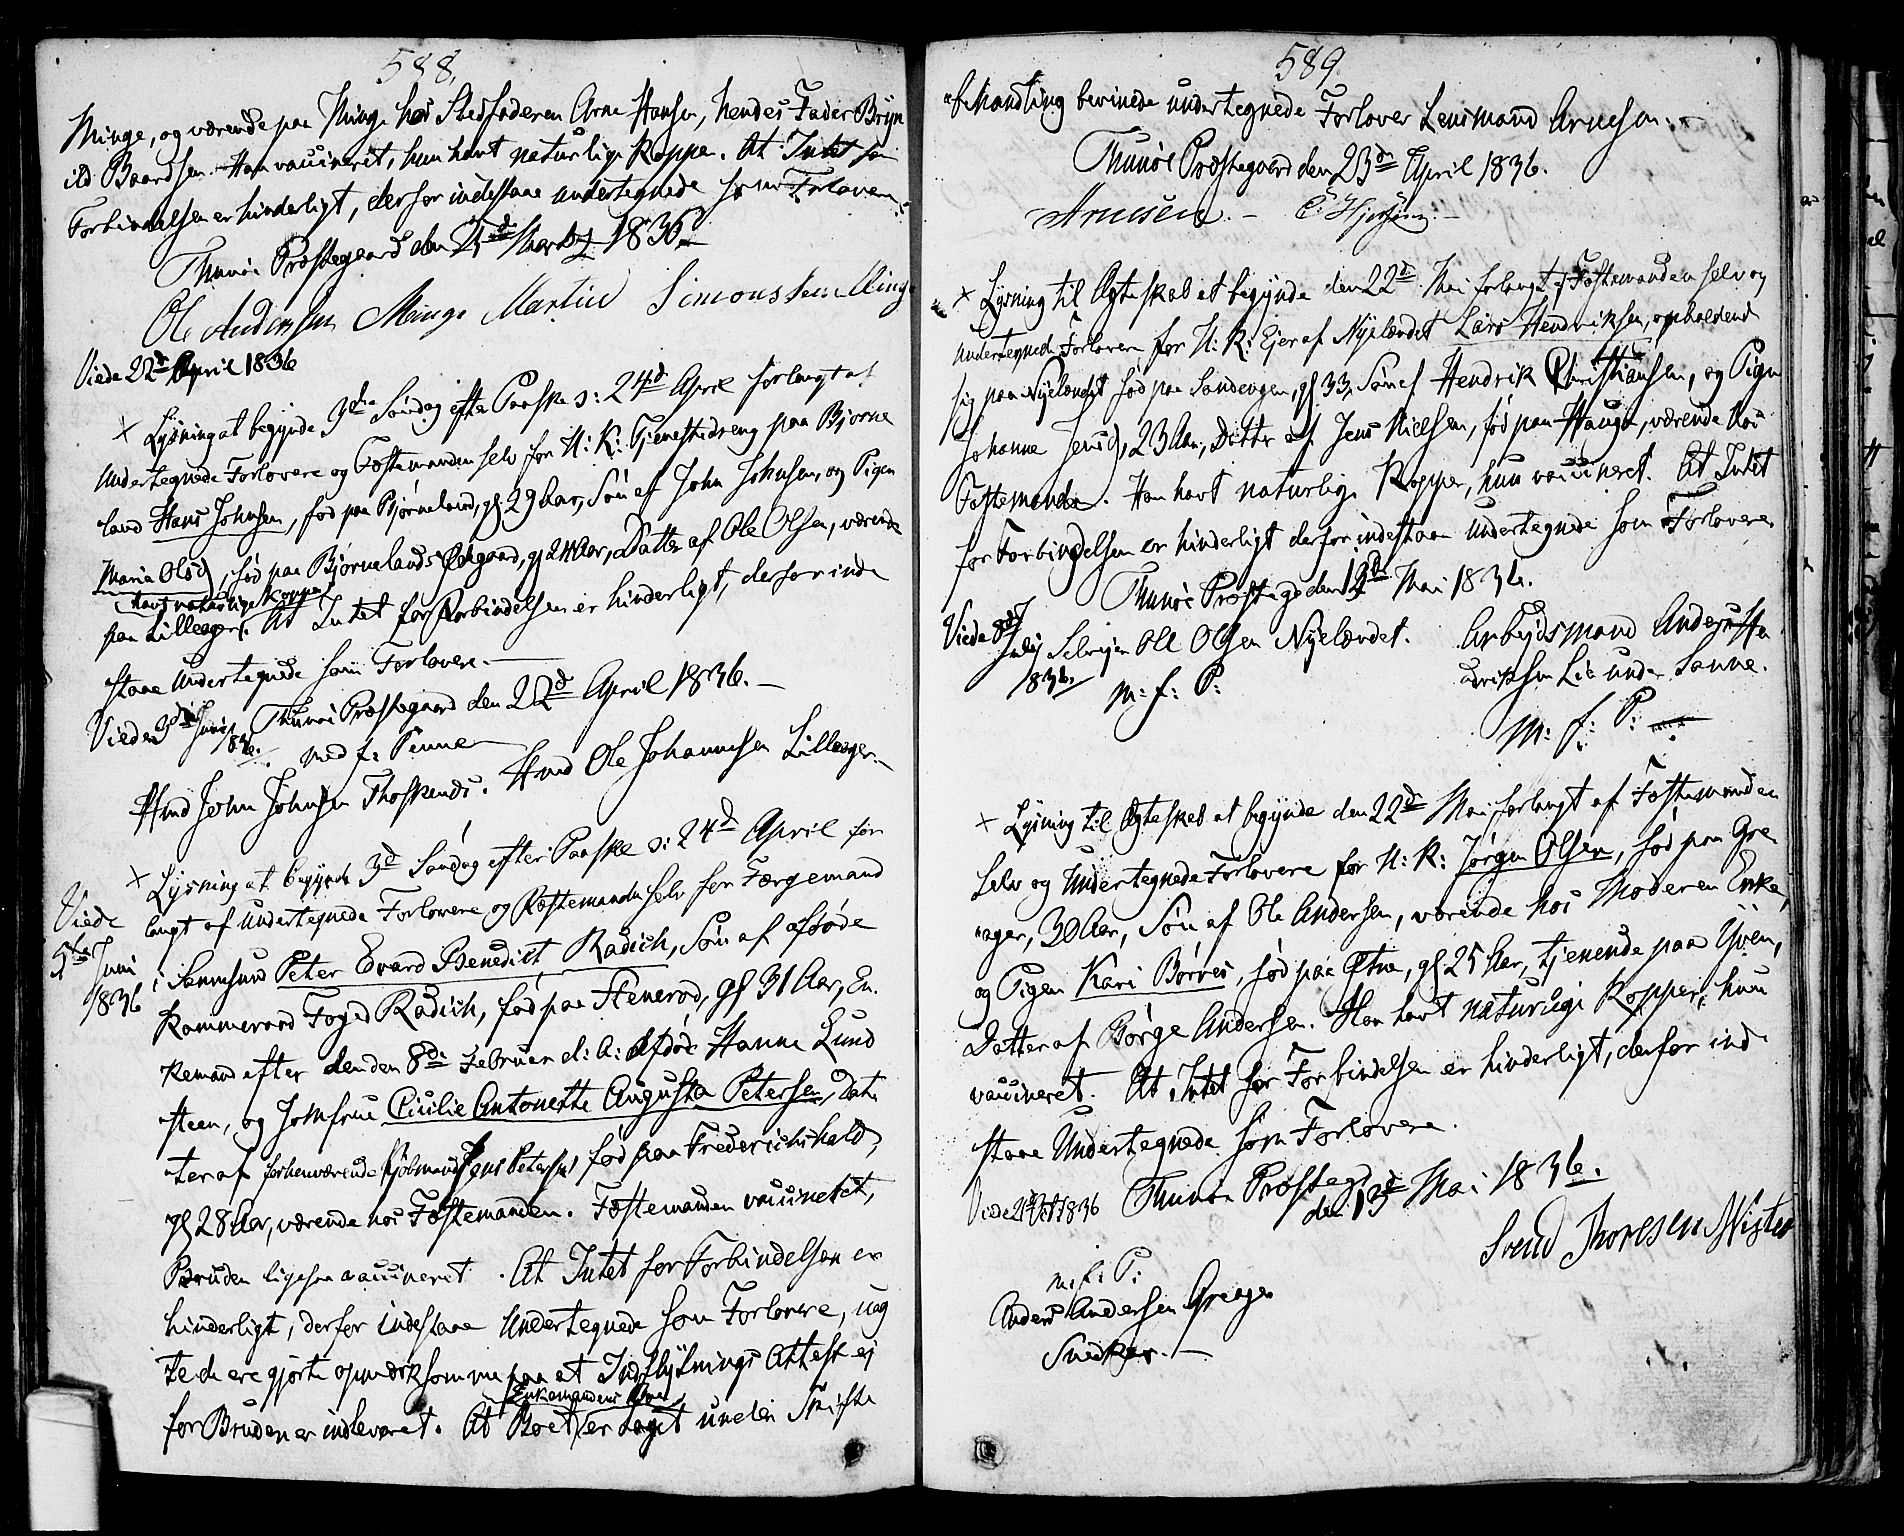 588.
Minge, og værende paa Minge hos Stedfaderen Arne Hansen, hendes Fader Bryn
ild Baardsen. Han vaccineret, hun havt naturlige Kopper. At Intet for
Forbindelsen er hinderligt, derfor indestaae undertegnede som Forlovere.
Thunøe Præstegaard den Marts 1836
Ole Andersen Minge Martin Simonsen Minge
Viede 22d April 1836
× Lysning at begynde 3die Søndag efter Paaske ɔ: 24d April forlangt af
undertegnede Forlovere og Fæstemanden selv for U: K: Tjenestedreng paa Bjørne
land Hans Johnsen, født paa Bjørneland, gl 29 Aar, Søn af John Johnsen, og Pigen
Maria Olsd, født paa Bjørnelands Ødegaard, gl 24 Aar, Datter af Ole Olsen, værende
havt naturlige Kopper
paa Lilleager. At Intet for Forbindelsen er hinderligt, derfor inde
staae undertegnede som Forlovere.
Viede 3die Juni 1836. Thunøe Præstegaard den 22d April 1836.
med f: Penne
Hmd John Johnsen Thoskends. Hmd Ole Johannesen Lilleager.
× Lysning at begynde 3d Søndag efter Paaske ɔ: 24d April for
Viede 5te Juni 1836
langt af undertegnede Forlovere og Fæstemanden selv for Færgemand
i Sannesund Peter Evard Benedict Radich, Søn af afdøde
Kammerraad Foged Radich, født paa Stenerød, gl 31 Aar, En
kemand efter den den 8de Februar d: A: afdøde Hanne Lund
steen, og Jomfrue Cicilie Antonette Augusta Petersen, Dat
ter af forhenværende Kjøbmand Jens Petersen født paa Frederichshald,
gl 28 Aar, værende hos Fæstemanden. Fæstemanden vaccineret,
Bruden ligesaa vaccineret. At Intet for Forbindelsen er
hinderligt, derfor indestaae undertegnede som Forlovere, uag
tede ere gjorte opmærksomme paa at Indflytnings Attest ej
Enkemandens Boe
for Bruden er indleveret. At Boet er taget under Skifte
589.
behandling bevinede undertegnede Forlover Lensmand Arnesen.
Thunøe Præstegaard den 23d April 1836.
Arnesen.
× Lysning til Ægteskab at begynde den 22d Mai forlangt af Fæstemanden selv og
undertegnede Forlovere for U: K: Ejer af Nyelændet Lars Hendriksen, opholdend
sig paa Nyelændet født paa Sandengen, gl 33, Søn af Hendrik Christiansen, og Pigen
Johanne Jensd, 23 Aar, Datter af Jens Nielsen, født paa Hauge, værende hos
Fæstemanden. Han havt naturlige Kopper, hun vaccineret. At Intet
for Forbindelsen er hinderligt derfor indestaae undertegnede som Forlovere
Thunøe Præstegd den 13d Mai 1836.
Viede 8d July 1836. Selvejer Ole Olsen Nyelændet. Arbejdsmand Anders Hen
m: f: P: driksen Lie under Sanne.
m: f: P:
× Lysning til Ægteskab at begynde den 22d Mai forlangt af Fæstemanden
selv og undertegnede Forlovere for U: K: Jørgen Olsen, født paa Gre
ager, 30 Aar, Søn af Ole Andersen, værende hos Moderen Enke,
og Pigen Kari Børres, født paa Østne, gl 25 Aar, tjenende paa Yven,
Datter af Børge Andersen. Han havt naturlige Kopper, hun
vaccineret. At Intet for Forbindelsen er hinderligt, derfor inde
staae Undertegnede som Forlovere.
Viede 21d Oct 1836 Thunøe Præstegd den 13d Mai 1836.
Svend Thoresen Nister
m: f: P:
Anders Andersen Greager
Snedker.